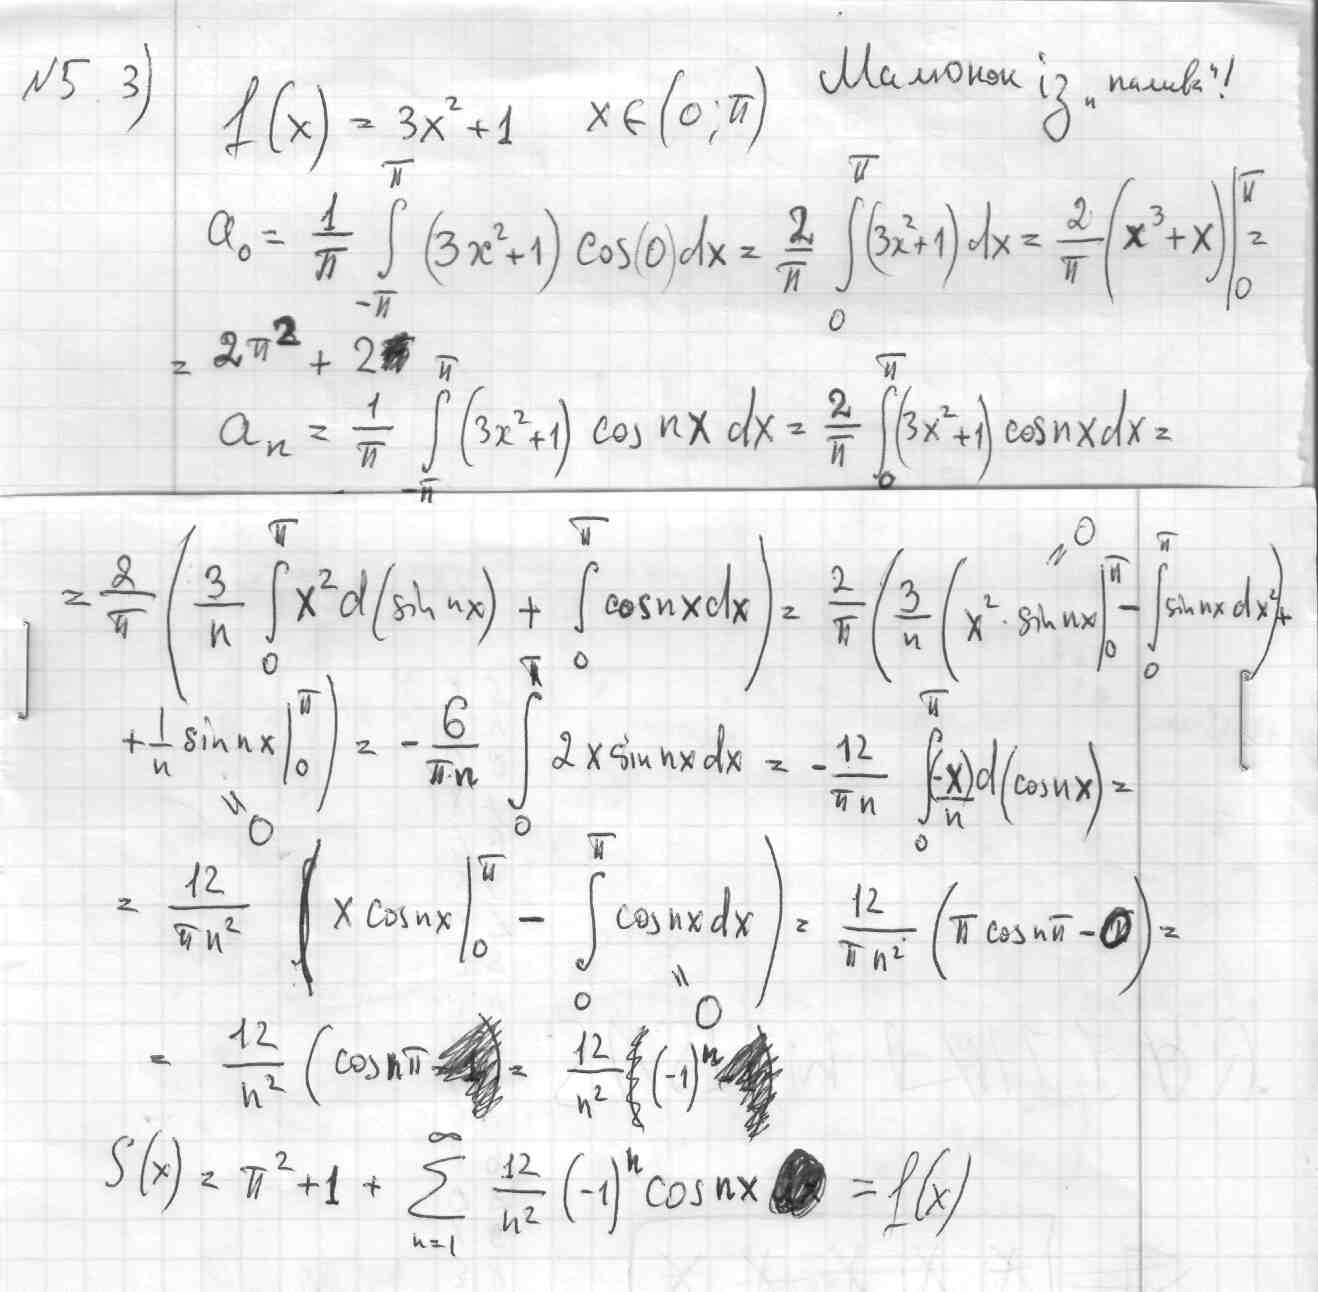 №5 3) f(x) = 3x² + 1 x ∈ (0; π) Малюнок із „ "!
a₀ = 1/π ∫_{-π}^{π} (3x² + 1) cos(0) dx = 2/π ∫_0^π (3x² + 1) dx = 2/π (x³ + x) |_0^π =
= 2π² + 2
aₙ = 1/π ∫_{-π}^{π} (3x² + 1) cos nx dx = 2/π ∫_0^π (3x² + 1) cos nx dx =
= 2/π (3/n ∫_0^π x² d(sin nx) + ∫_0^π cos nx dx) = 2/π (3/n (x² · sin nx |_0^π = 0 - ∫_0^π sin nx dx²) +
+ 1/n sin nx |_0^π = 0) = - 6/(π·n) ∫_0^π 2x sin nx dx = - 12/(πn) ∫_0^π (-x)/n d(cos nx) =
= 12/(πn²) (x cos nx |_0^π - ∫_0^π cos nx dx = 0) = 12/(πn²) (π cos nπ - 0) =
= 12/n² (cos nπ) = 12/n² (-1)ⁿ
S(x) = π² + 1 + ∑_{n=1}^{∞} 12/n² (-1)ⁿ cos nx = f(x)